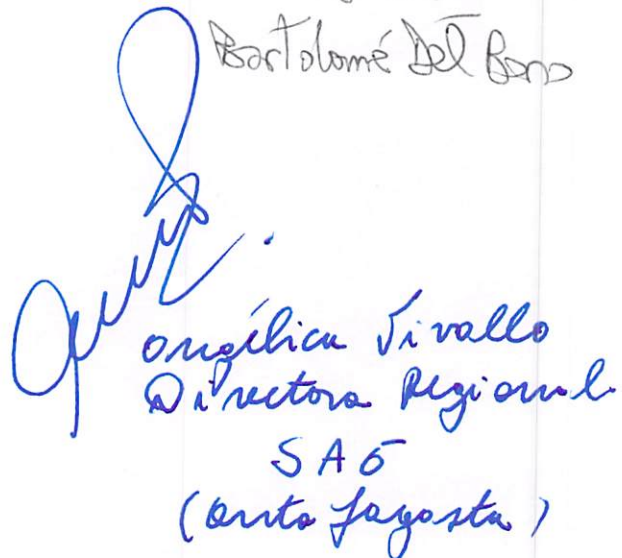 Bartolomé Del Bono
Angélica Vivallo
Directora Regional
SAG
(Antofagasta)